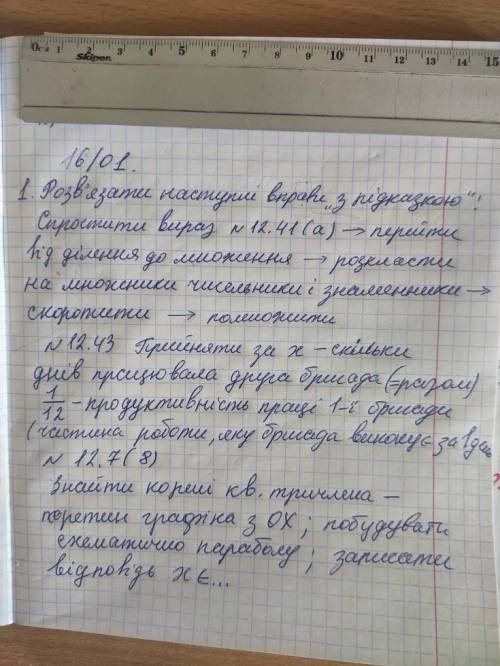 0см 1 2 3 4 5 6 7 8 9 10 11 12 13 14 15
skiper
16/01.
1. Розв'язати наступні вправи „з підказкою":
Спростити вираз №12.41(а) → перейти
від ділення до множення → розкласти
на множники чисельники і знаменники →
скоротити → помножити
№12.43 Прийняти за х – скільки
днів працювала друга бригада (–разом)
1/12 – продуктивність праці 1-ї бригади
(частина роботи, яку бригада виконує за 1 день
№ 12.7(8)
Знайти корені кв. тричлена –
перетин графіка з ОХ; побудувати
схематично параболу; записати
відповідь х є...